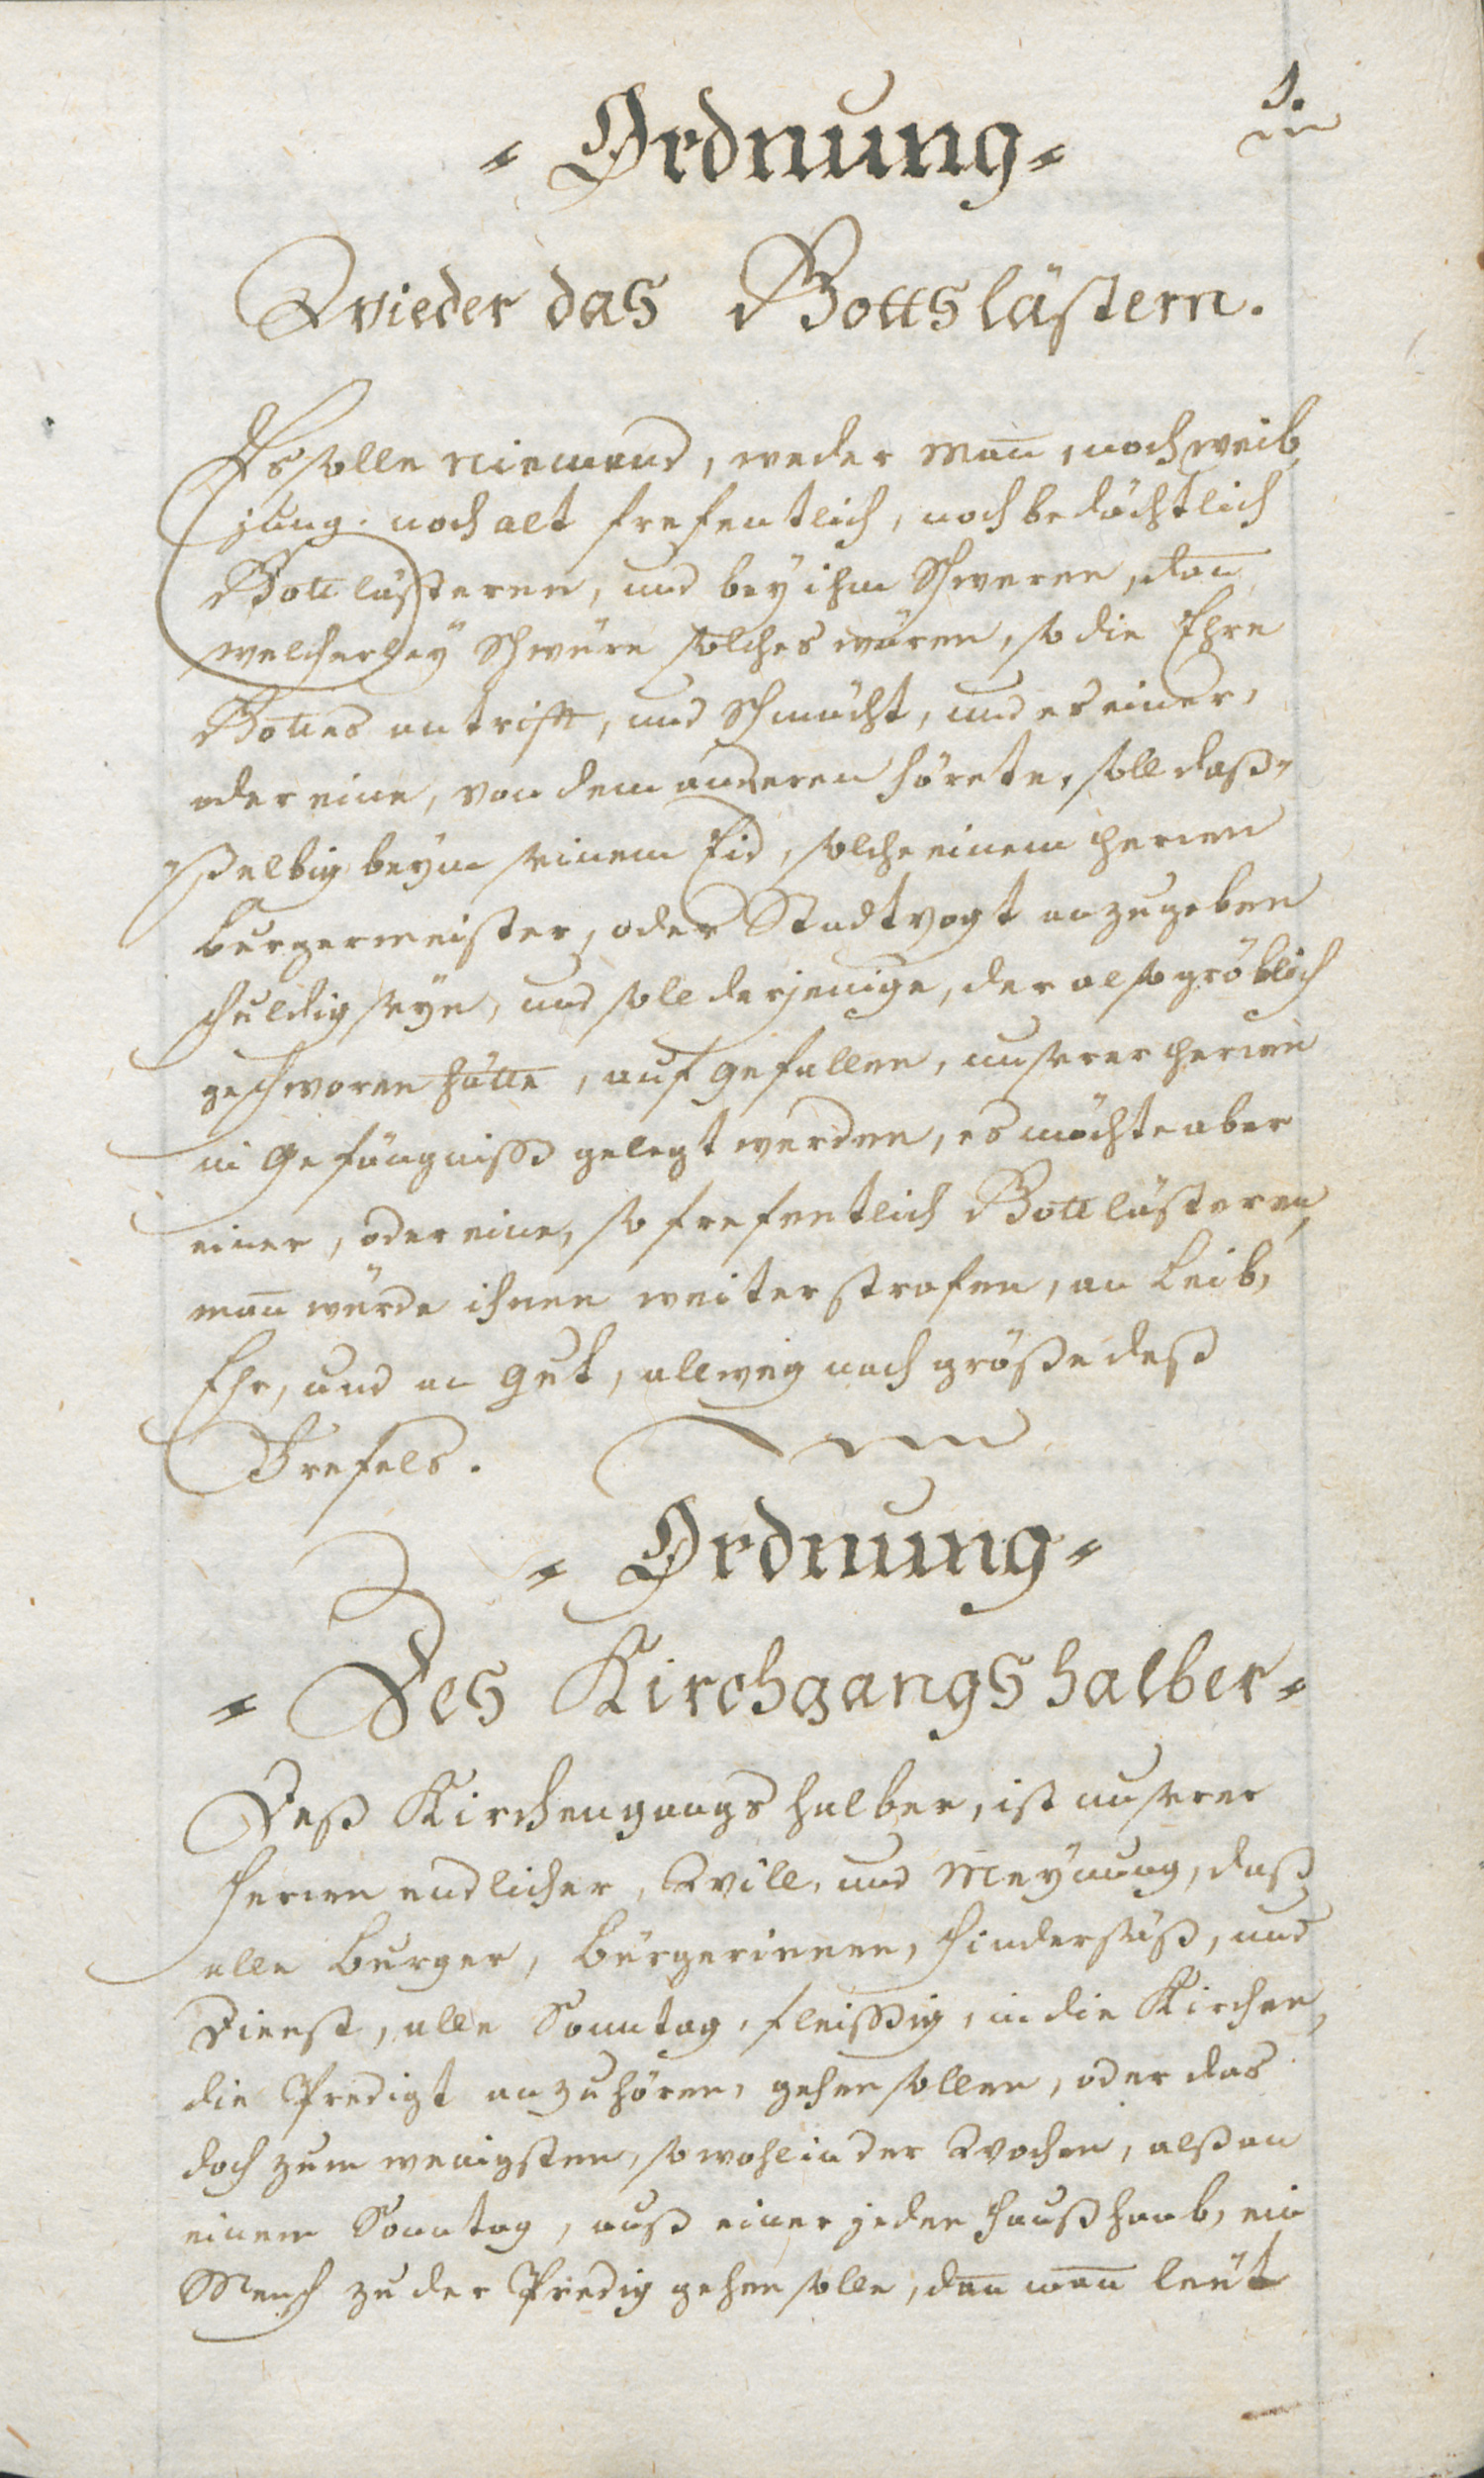 1.
= Ordnung =
Wieder das Gottslästern.
Es solle niemand, weder Man̄, noch weib
jung. noch alt frefentlich, noch bedächtlich
Gott lästeren, und beÿ ihm Schweren, dan̄
welcherleÿ Schwüre solches wären, so die Ehre
Gottes antrifft, und Schmächt, und es einer,
oder eine, von dem anderen hörete, soll daß=
=selbig beÿm seinem Eid, solche einem herren
Burgermeister, oder Stadtvogt anzugeben
schuldig seÿn, und soll derjenige, der also gröblich
geschworen hätte, auf gefallen, unserer herren
in Gefängniss gelegt werden, es möchte aber
einer, oder eine, so frefentlich Gott lästeren,
man̄ würde ihnen weiter strafen, an Leib,
Ehr, und an Gut, allweg nach größe deß
Frefels.
= Ordnung =
= Des Kirchgangs halber =
Deß Kirchengangs halber, ist unserer
herren endlicher, Will, und Meÿnung, daß
alle Burger, Burgerinnen, hindersäß, und
Dienst, alle Sonntag, fleissig, in die Kirchen,
die Predigt anzuhören, gehen sollen, oder das
doch zum wenigsten, so wohl in der Wochen, alß an
einem Sonntag, auß einer jeden haußhaab, ein
Mensch zu der Predig gehen solle, dan̄ wan̄ leüt